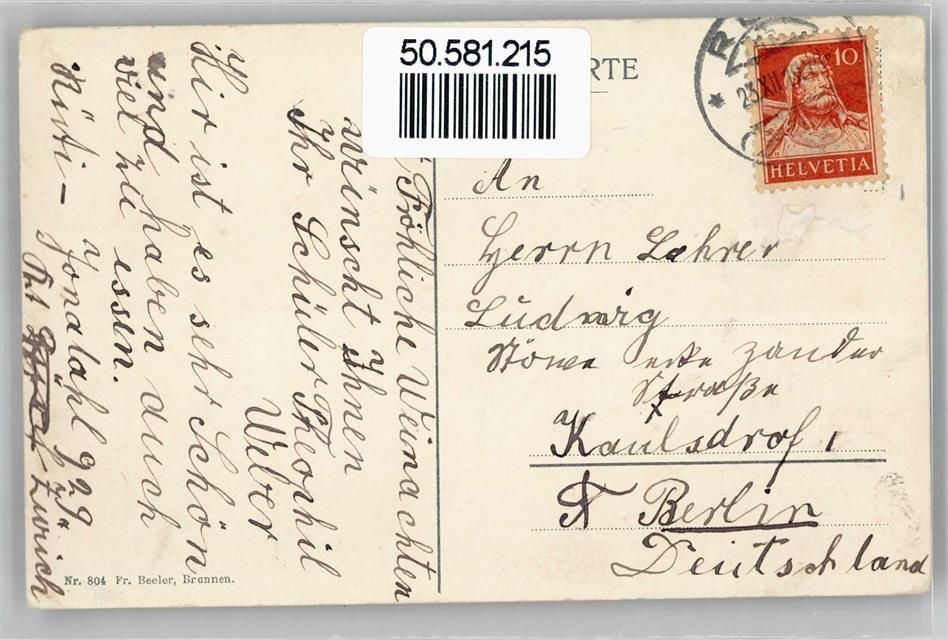 50.581.215
RTE
R
23.XII.
10.
HELVETIA
An
Herrn Lehrer
Ludwig
Stöwe ecke Zander
Straße
Kaulsdrof 1
Berlin
Deutschland
Fröhliche Weinachten
Wünscht Ihnen
Ihr Schüler Theophil
Weber
Hir ist es sehr Schön
und haben auch
viel zu essen.
Rüti – Jonatahl 929
Kt Zürich
Nr. 804 Fr. Beeler, Brunnen.